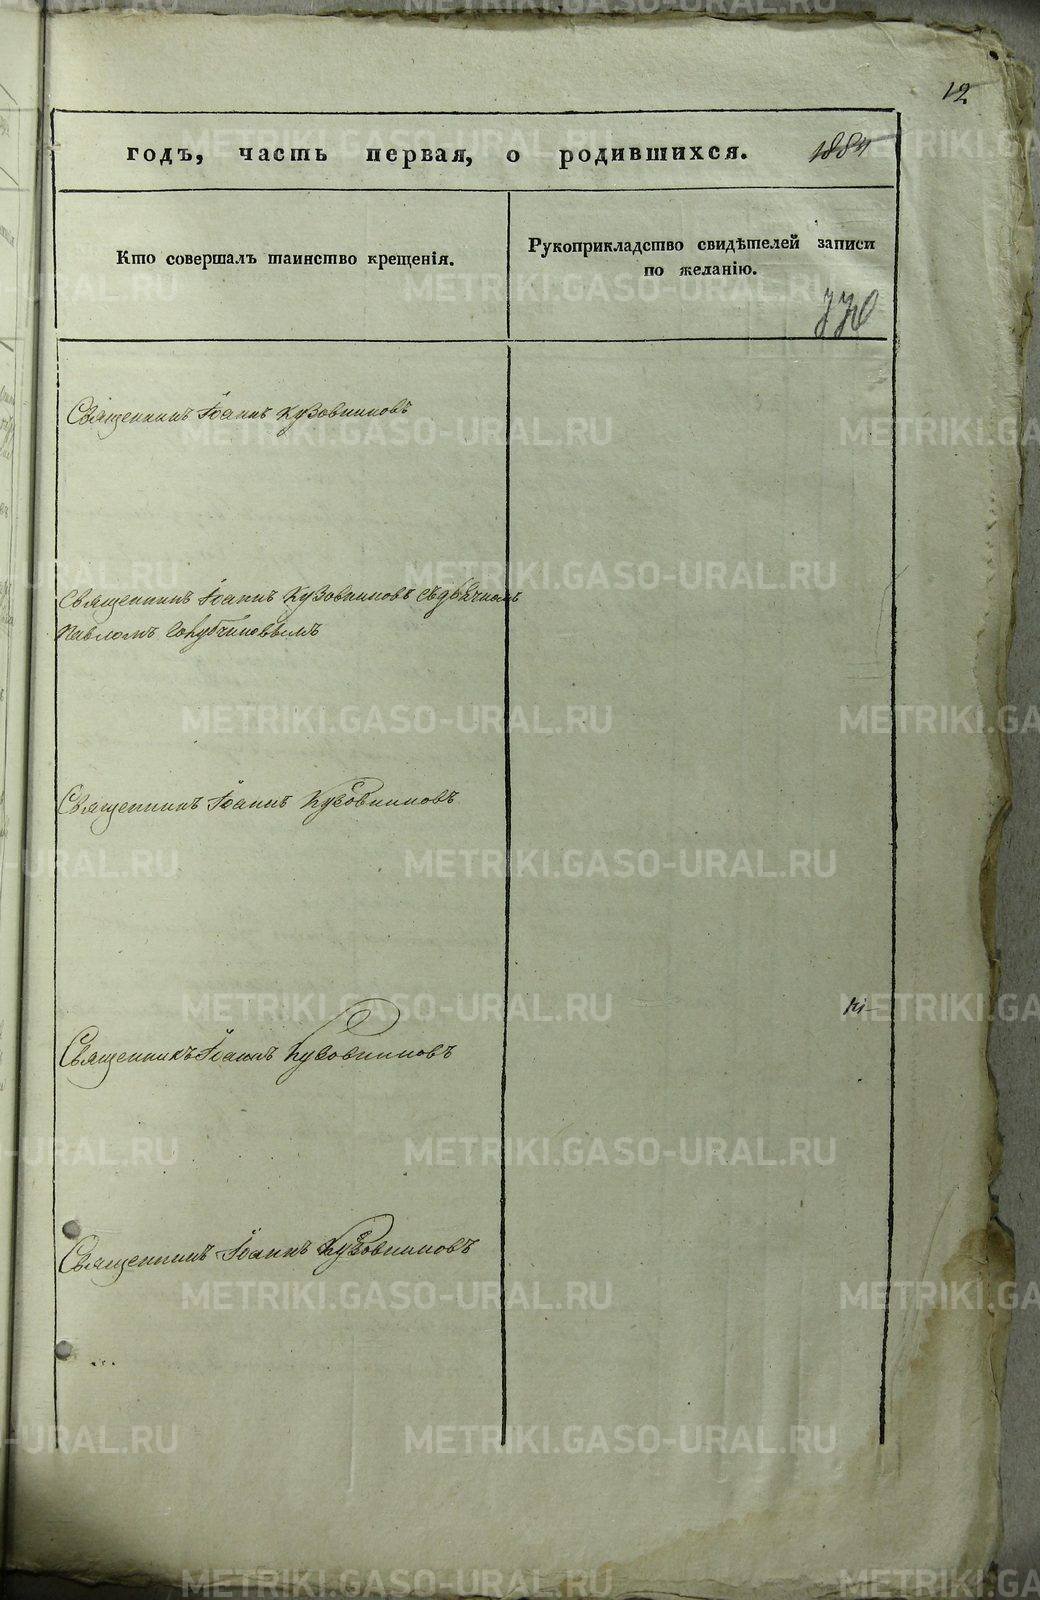 12
годъ, часть первая, о родившихся.
Кто совершалъ таинство крещенія.
Рукоприкладство свидѣтелей записи
по желанію.
Священникъ Іоаннъ Кузовниковъ
Священникъ Іоаннъ Кузовниковъ съ дьячкомъ
Павломъ
Священникъ Іоаннъ Кузовниковъ
Священникъ Іоаннъ Кузовниковъ
Священникъ Іоаннъ Кузовниковъ
METRIKI.GASO-URAL.RU